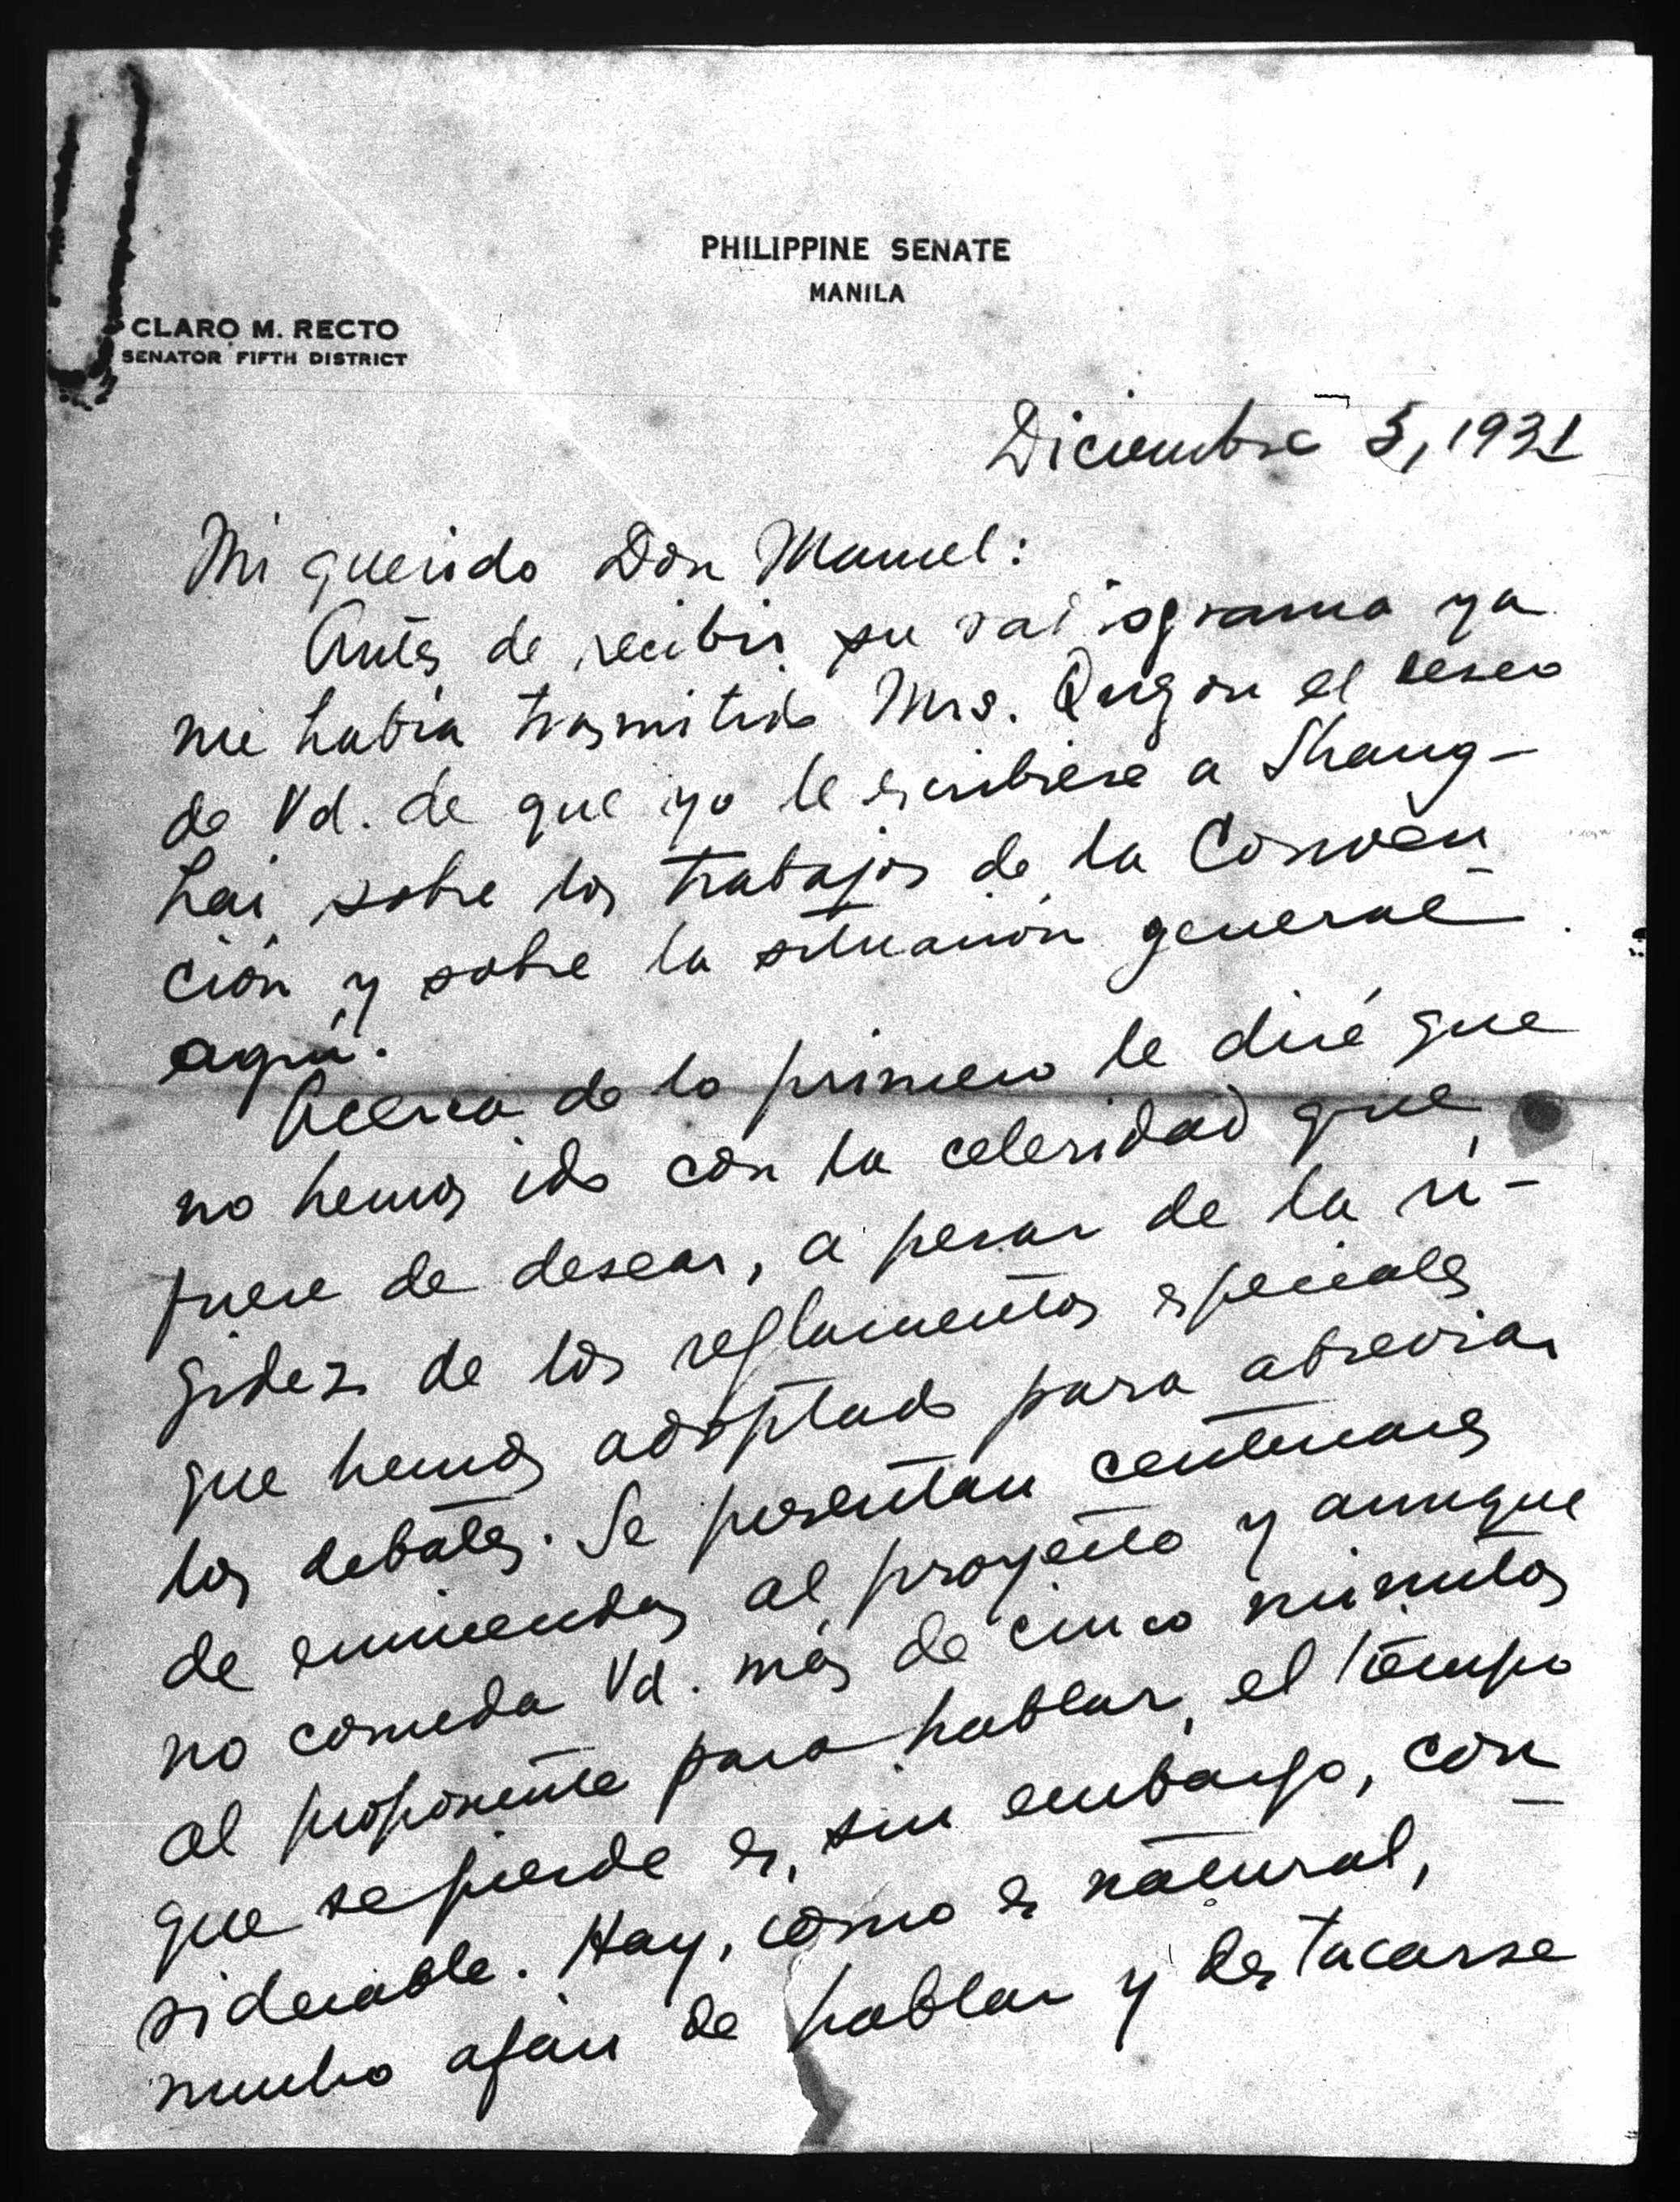 PHILIPPINE SENATE
MANILA
CLARO M. RECTO
SENATOR FIFTH DISTRICT
Diciembre 3, 1931
Mi querido Don Manuel:
Antes de recibir su radiograma ya
me había trasmitido Mrs. Quezon el deseo
de Vd. de que yo le escribiese a Shang-
hai sobre los trabajos de la Conven-
ción y sobre la situación general
aquí.
Acerca de lo primero le diré que
no hemos ido con la celeridad que
fuere de desear, a pesar de la ri-
gidez de los reglamentos especiales
que hemos adoptado para abreviar
los debates. Se presentan centenares
de enmiendas al proyecto y aunque
no conceda Vd. más de cinco minutos
al proponente para hablar, el tiempo
que se pierde es, sin embargo, con-
siderable. Hay, como es natural,
mucho afán de hablar y destacarse